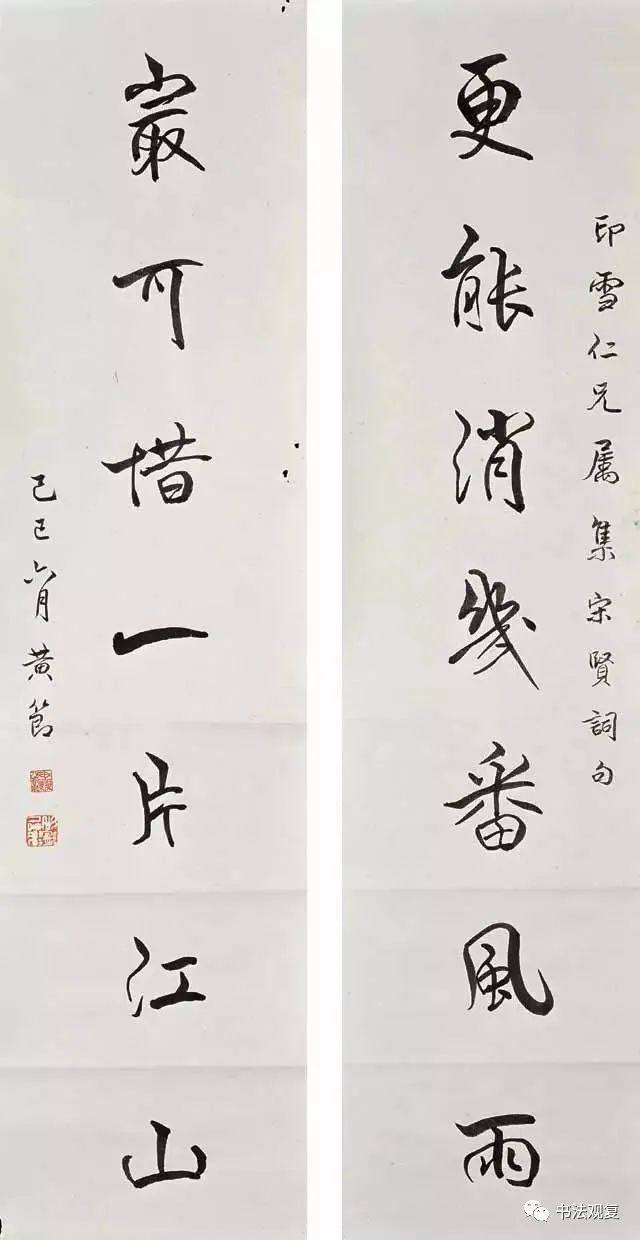 印雪仁兄属集宋賢詞句
更能消幾番風雨
最可惜一片江山
己巳六月黃節
书法观复